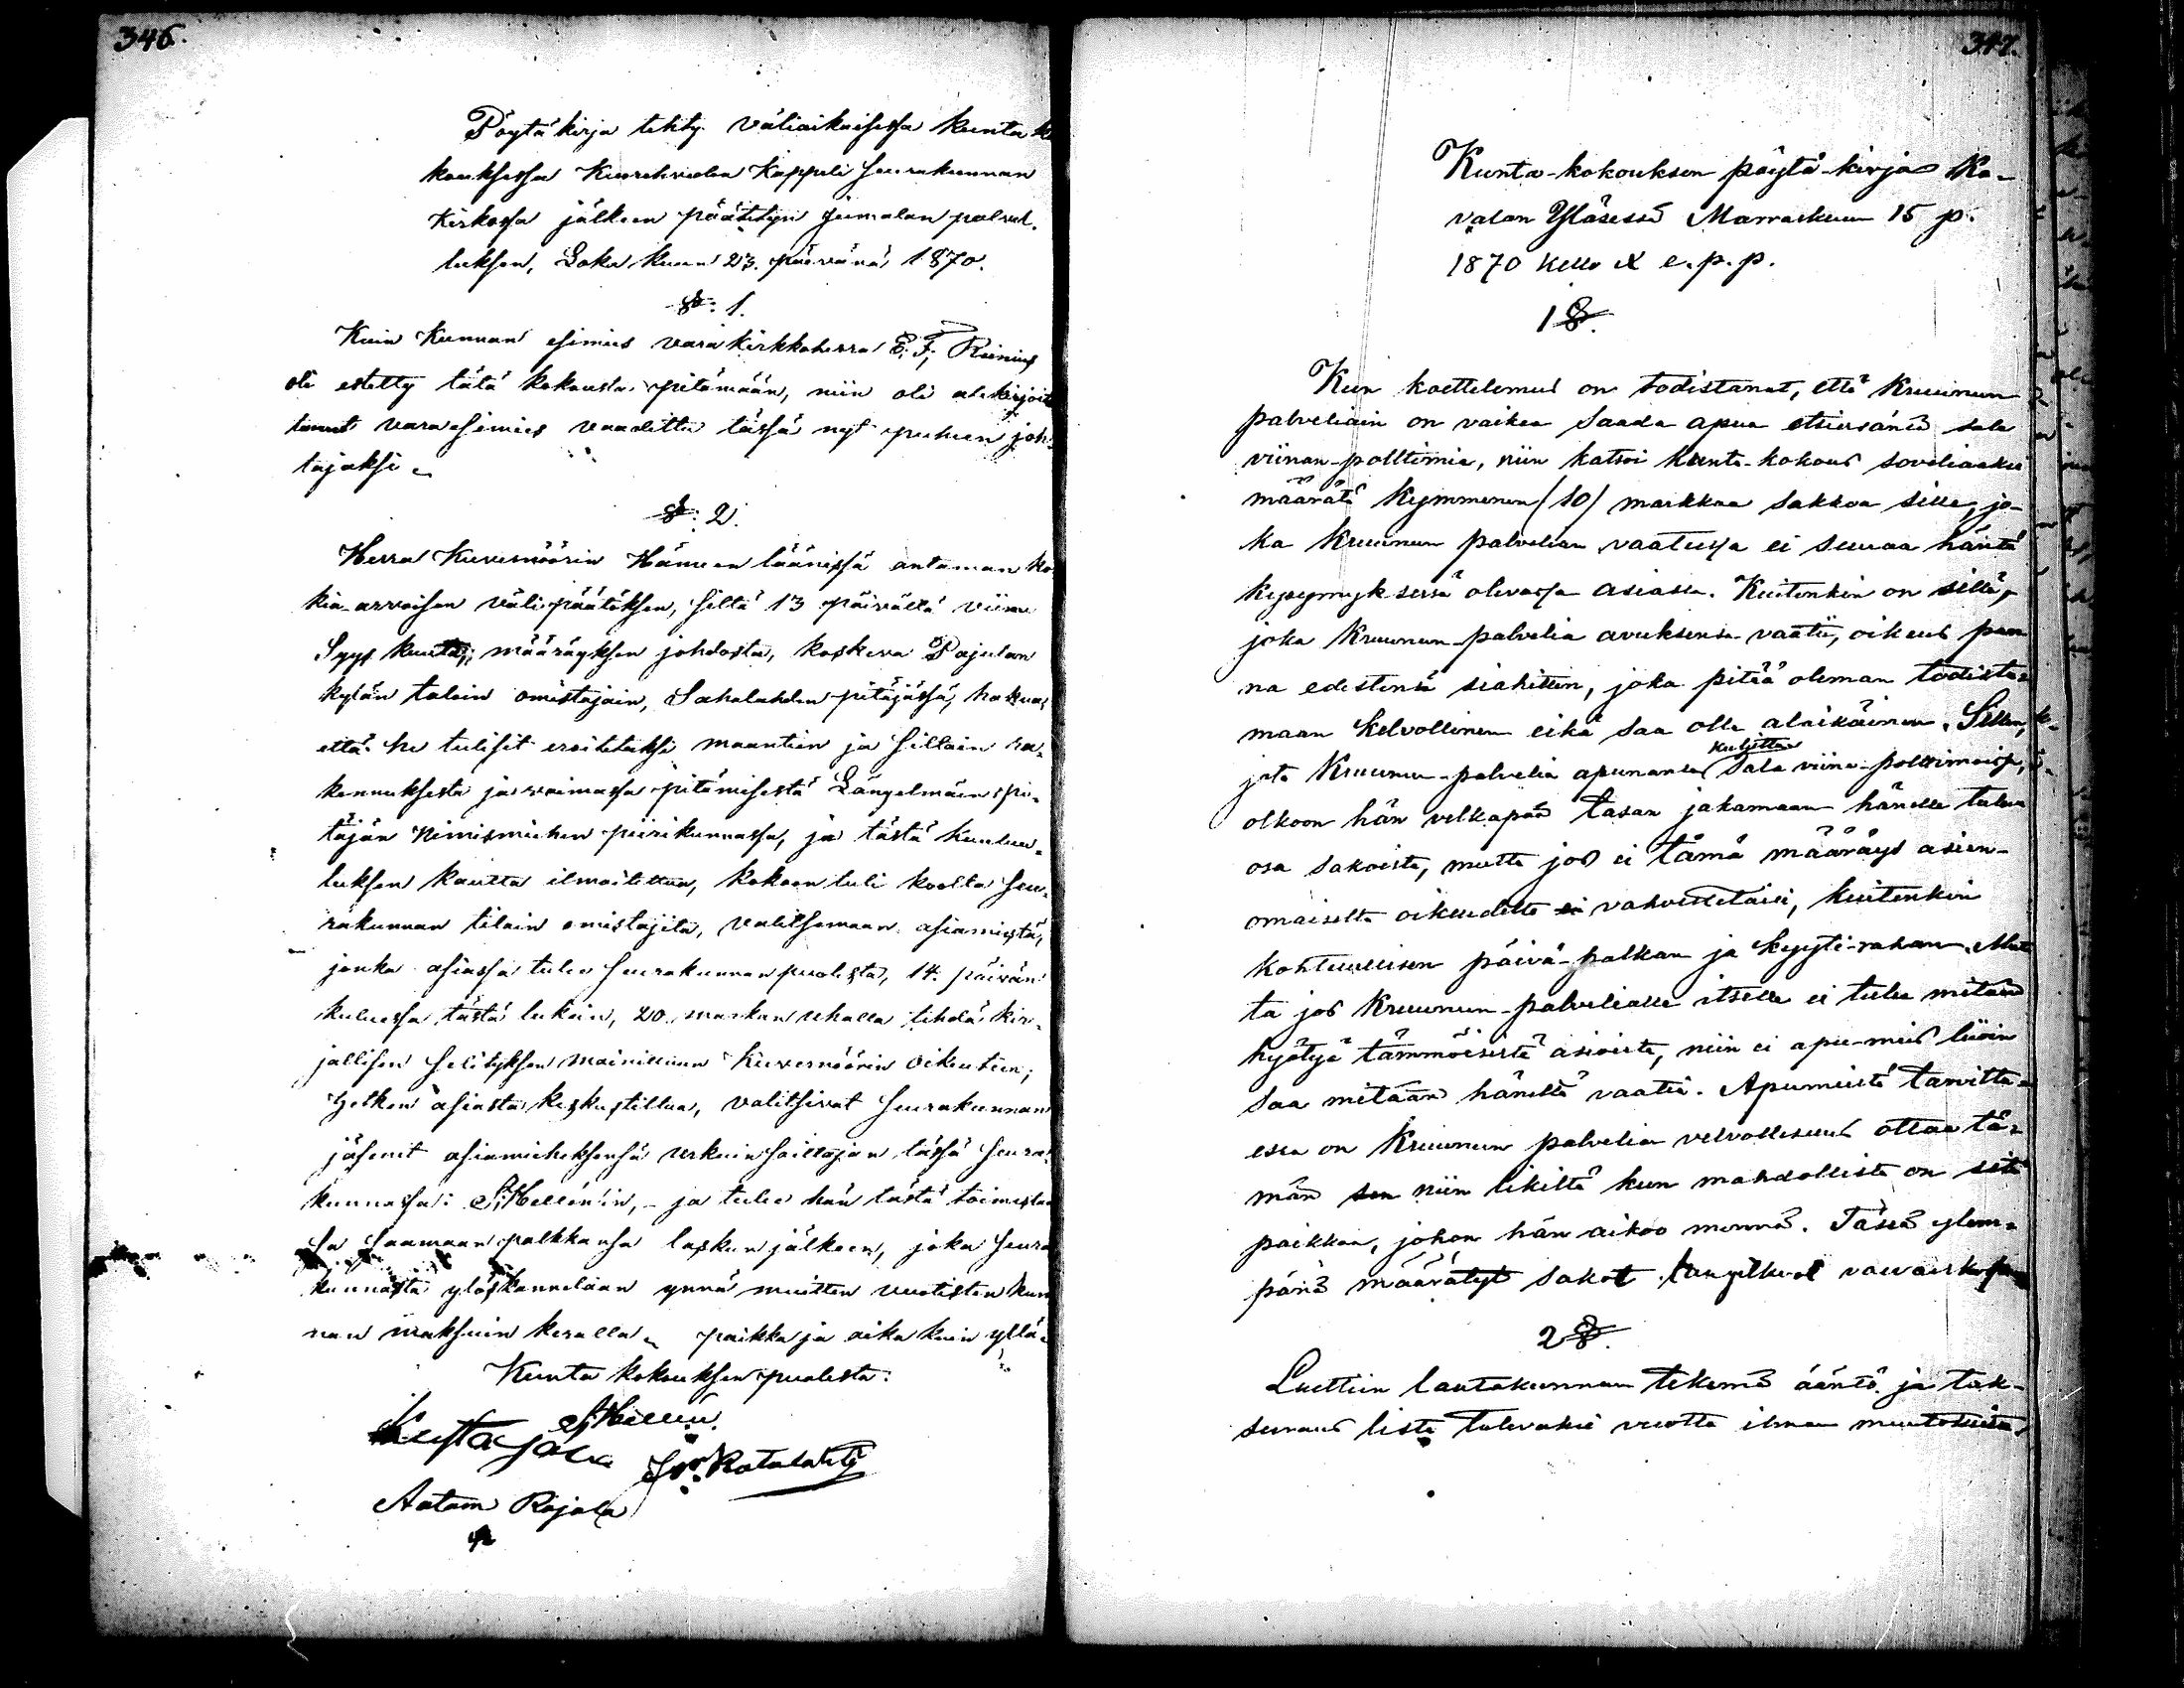 346.
Pöytäkirja tehty väliaikaisessa kunta ko
kouksessa Kuorehveden Kappeli seurakunnan
kirkossa jälkeen päätetyn jumalan palvel.
luksen, Loka kuun 23. päivänä 1870.
§: 1.
Kuin Kunnan esimies varakirkkoherra E. F.
oli estetty tätä kokousta pitämään, niin oli allekirjoit
tanut varaesimies vaadittu tässä nyt puheen joh-
tajaksi.
§: 2.
Herra Kuvernöörin Hämeen läänissä antaman kor
kia-arvoisen välipäätöksen, siltä 13 päivältä viime
Syys kuuta, määräyksen johdosta, koskeva Pajulan
kylän taloin omistajain, Sahalahden pitäjässä, hakua,
että he tulisit eroitetuksi maantien ja siltain ra-
kennuksesta ja voimassa pitämisestä Längelmäen pi-
täjän Nimismiehen piirikunnassa, ja tästä kuulu-
tuksen kautta ilmoitettua, kokoon tuli koolta seu-
rakunnan tilain omistajita, valitsemaan asiamiestä,
jonka asiassa tulee seurakunnan puolesta, 14. päivän
kuluessa tästä lukein, 20. markan uhalla tehdä kir-
jallisen selityksen mainittuun Kuvernöörin oikeuteen;
Hetken asiasta keskusteltua, valitsivat seurakunnan
jäsenit asiamieheksensä urkuin soittajan tässä seura-
kunnassa: S. Hellén'in, - ja tulee hän tästä toimesta
sa saamaan palkkansa laskun jälkeen, joka seura
kunnasta ylöskannetaan ynnä muitten vuotisten kun
nan maksuin keralla. paikka ja aika kuin yllä.
Kunta kokouksen puolesta:
S Hellén.
Kusta Jaka
Katalahti
Aatam Rajala
347.
Kunta-kokouksen pöytä-kirja Ka-
valan Yläsessä Marraskuun 15 p.
1870 kello X e. p. p.
1 §.
Kun koettelemus on todistanut, että Kruunun
palveliain on vaikea saada apua etsiesänsä sala
viinan-polttimia, niin katsoi kunta-kokous soveliaaksi
määrätä kymmenen (10) markkaa sakkoa sille, jo-
ka Kruunun palvelian vaatiessa ei seuraa häntä
kysymyksessä olevassa asiassa. Kuitenkin on sillä,
joka Kruunun-palvelia avuksensa vaatii, oikeus pan
na edestensä siahisen, joka pitää oleman todista-
maan kelvollinen eikä saa olla alaikäinen. Sillen,
jota Kruunun-palvelia apunansa kuljettaa sala viina-polttimoissa,
olkoon hän velkapää tasan jakamaan hänelle tuleva
osa sakoista, mutta jos ei tämä määräys asian-
omaiselta oikeudelta ei vahvistetaisi, kuitenkin
kohtuullisen päivä-palkan ja kyyti-rahan. Mut
ta jos Kruunun-palvelialle itselle ei tule mitään
hyötyä tämmöisistä asioista, niin ei apu-mies liioin
saa mitään häneltä vaatia. Apumiestä tarvitta-
essa on Kruunun palvelian velvollisuus ottaa tä-
män sen niin likiltä kun mahdollista on sitä
paikkaa, johon hän aikoo mennä. Tässä ylem-
pänä määrätyt sakot lankeevat vaivaiskassaan
2 §.
Luettiin lautakunnan tekemä ääntö ja tak-
seeraus lista tulevaksi vuotta ilman muutoksista